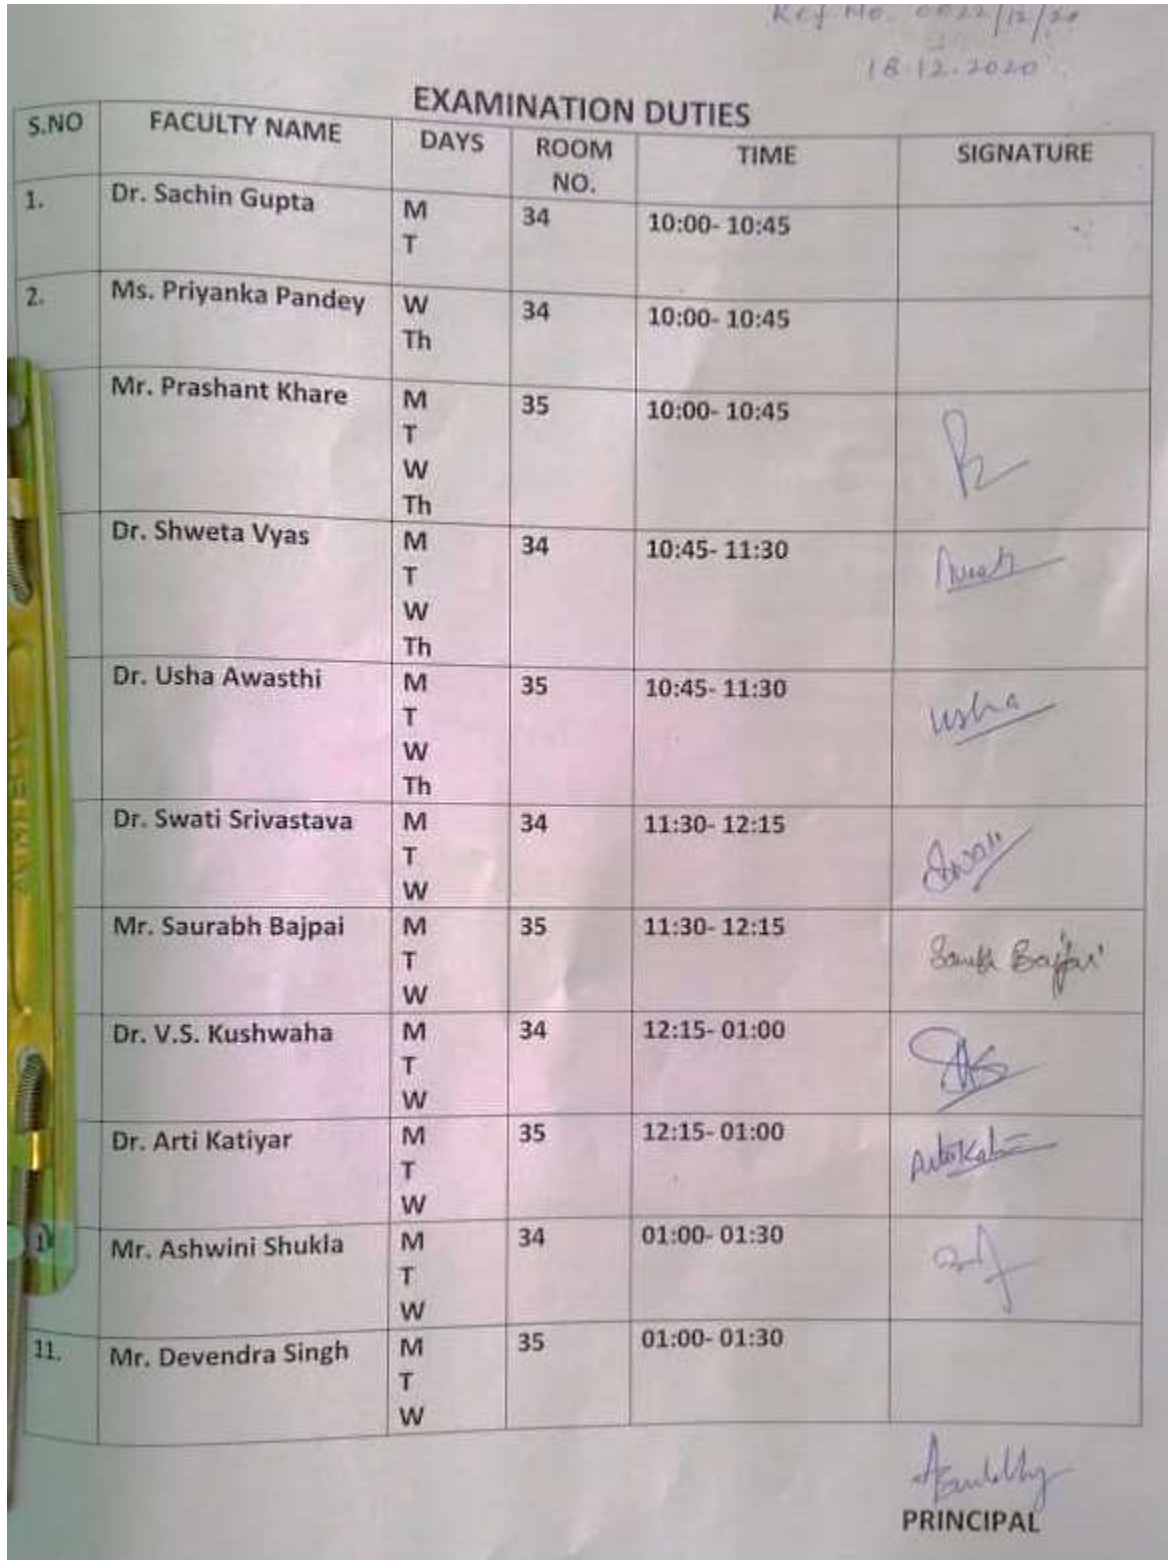 Ref. No. 0022/12/20
18.12.2020
EXAMINATION DUTIES
S.NO FACULTY NAME DAYS ROOM NO. TIME SIGNATURE
1. Dr. Sachin Gupta M 34 10:00- 10:45
T
2. Ms. Priyanka Pandey W 34 10:00- 10:45
Th
Mr. Prashant Khare M 35 10:00- 10:45
T
W
Th
Dr. Shweta Vyas M 34 10:45- 11:30
T
W
Th
Dr. Usha Awasthi M 35 10:45- 11:30 Usha
T
W
Th
Dr. Swati Srivastava M 34 11:30- 12:15 Swati
T
W
Mr. Saurabh Bajpai M 35 11:30- 12:15 Saurabh Bajpai
T
W
Dr. V.S. Kushwaha M 34 12:15- 01:00
T
W
Dr. Arti Katiyar M 35 12:15- 01:00
T
W
Mr. Ashwini Shukla M 34 01:00- 01:30
T
W
11. Mr. Devendra Singh M 35 01:00- 01:30
T
W
PRINCIPAL